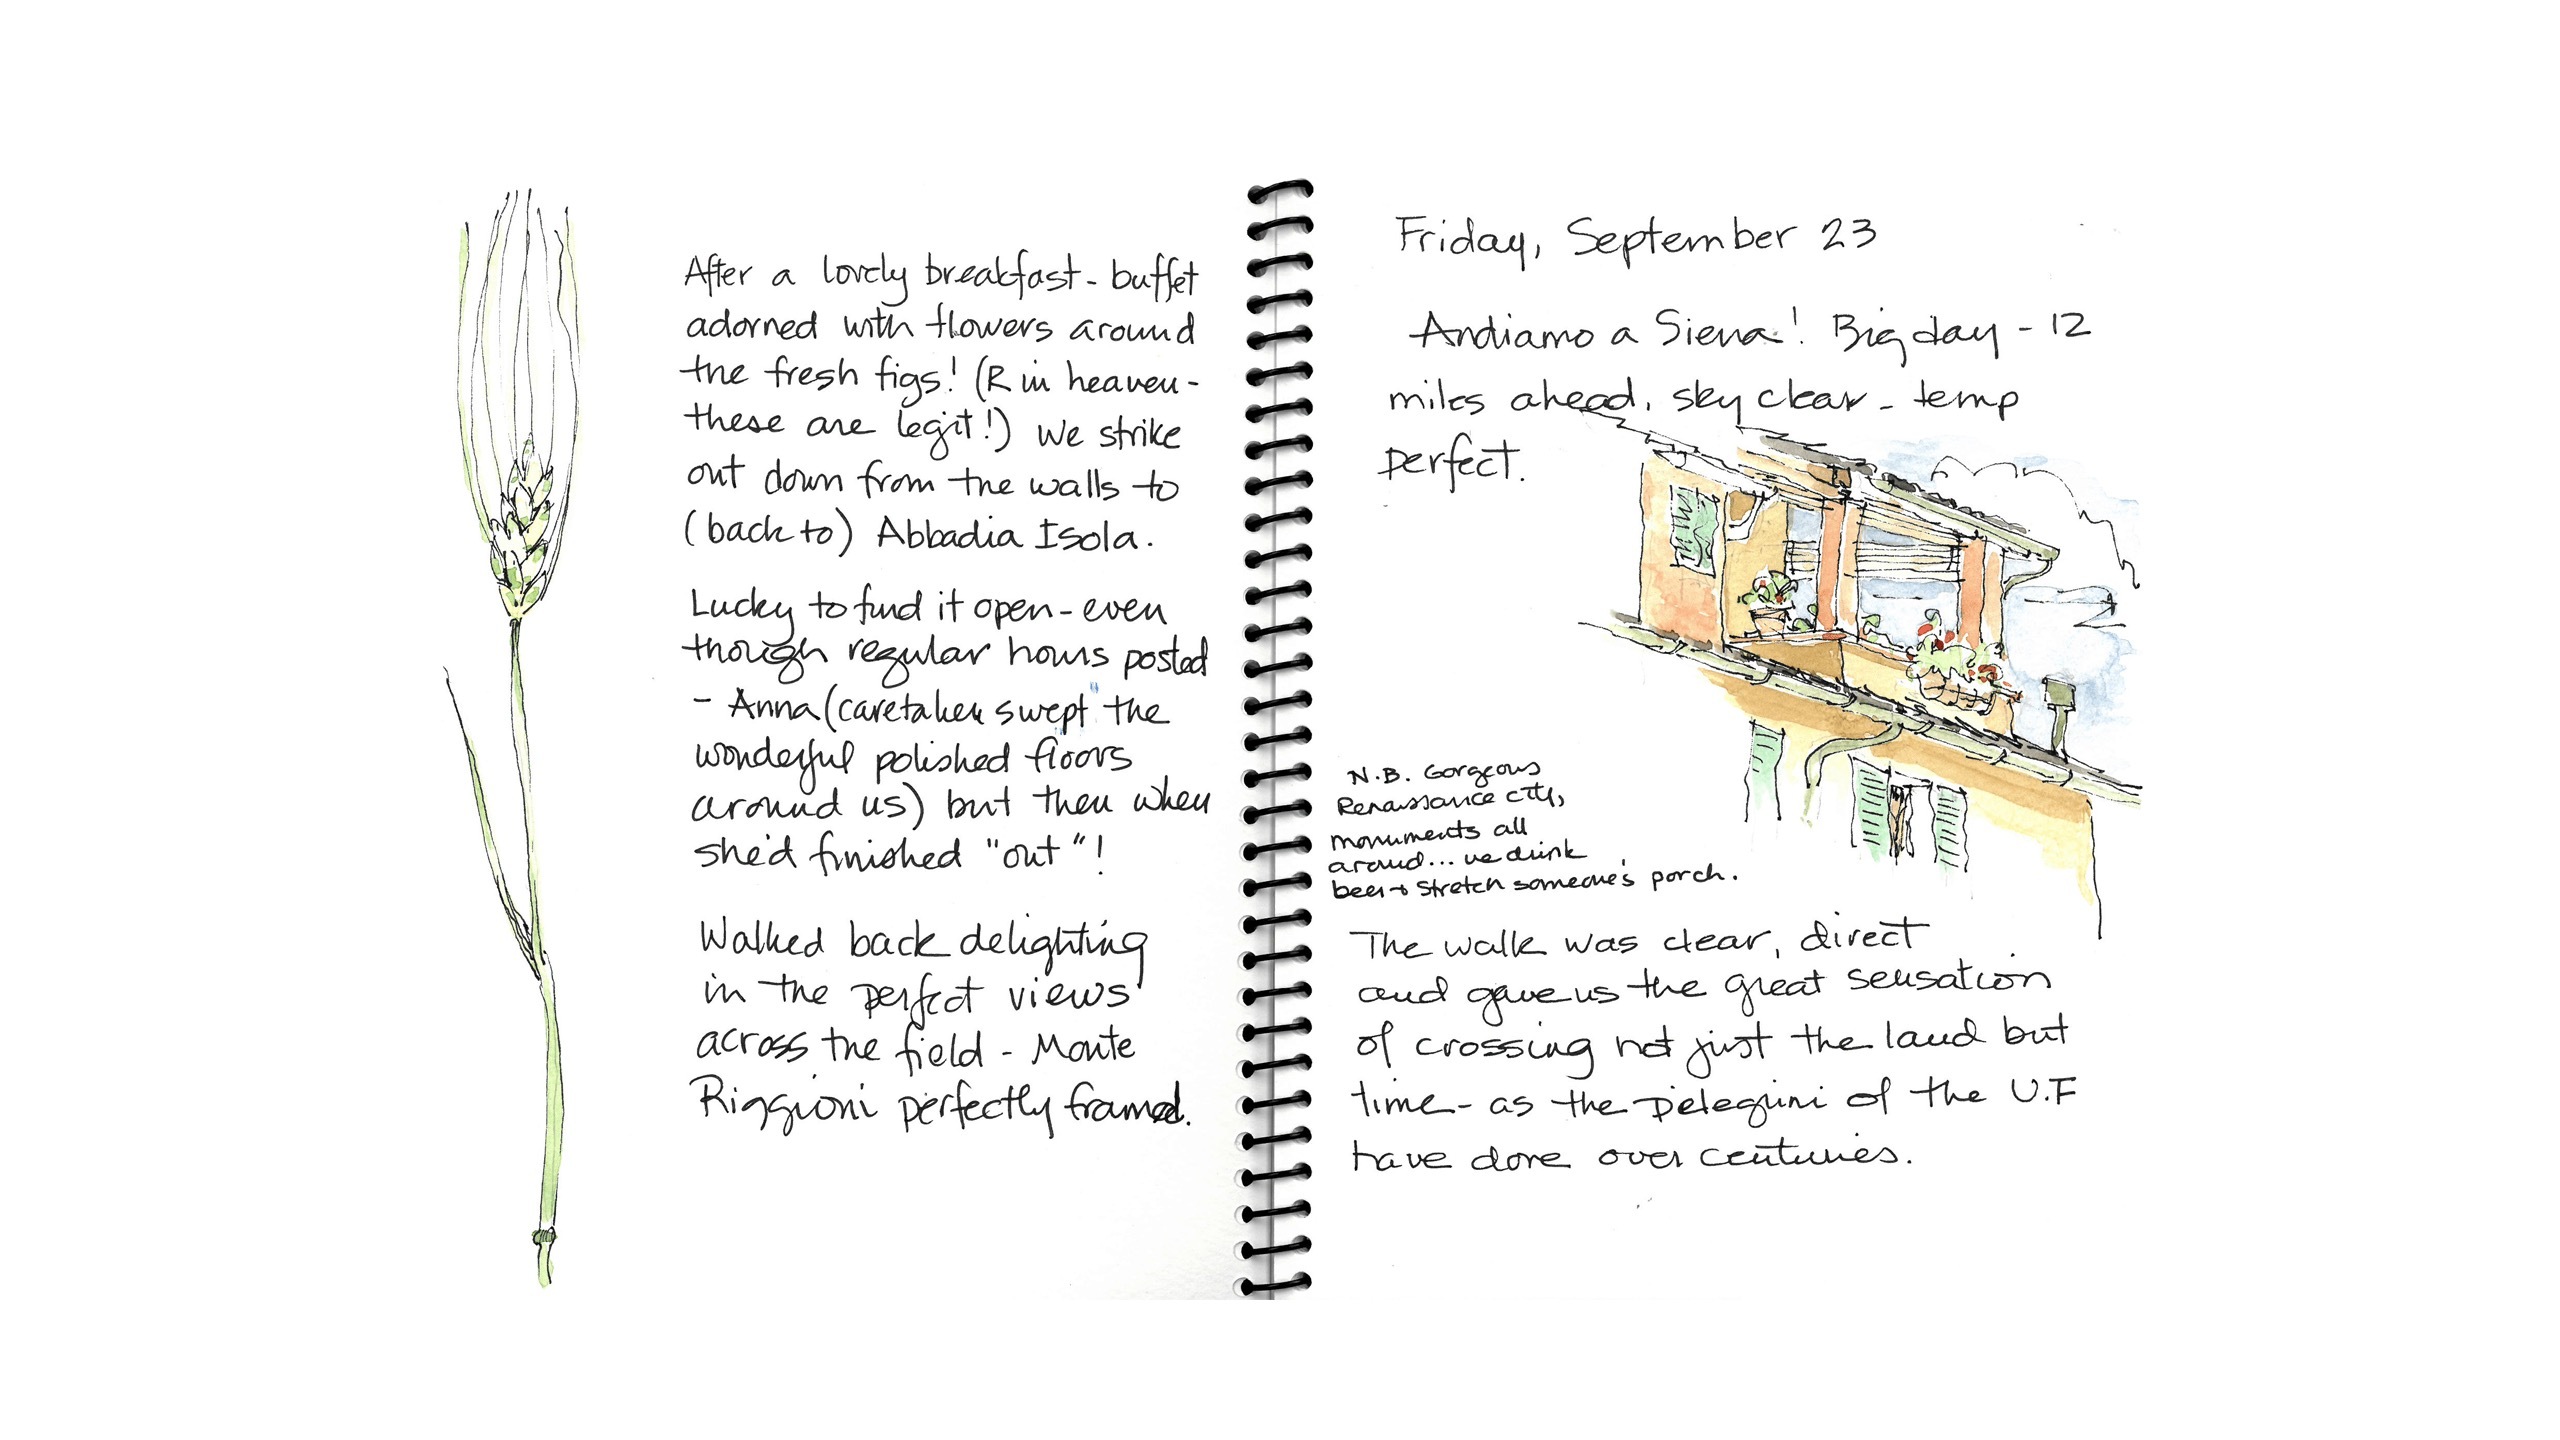 After a lovely breakfast - buffet
adorned with flowers around
the fresh figs! (R in heaven -
these are legit!) We strike
out down from the walls to
(back to) Abbadia Isola.
Lucky to find it open - even
though regular hours posted
- Anna (caretaker swept the
wonderful polished floors
around us) but then when
she'd finished "out"!
Walked back delighting
in the perfect views
across the field - Monte
Riggioni perfectly framed.
Friday, September 23
Andiamo a Siena! Big day - 12
miles ahead, sky clear - temp
perfect.
N.B. Gorgeous
Renaissance city,
monuments all
around... we drink
beer + stretch someone's porch.
The walk was clear, direct
and gave us the great sensation
of crossing not just the land but
time - as the pelegrini of the V.F
have done over centuries.